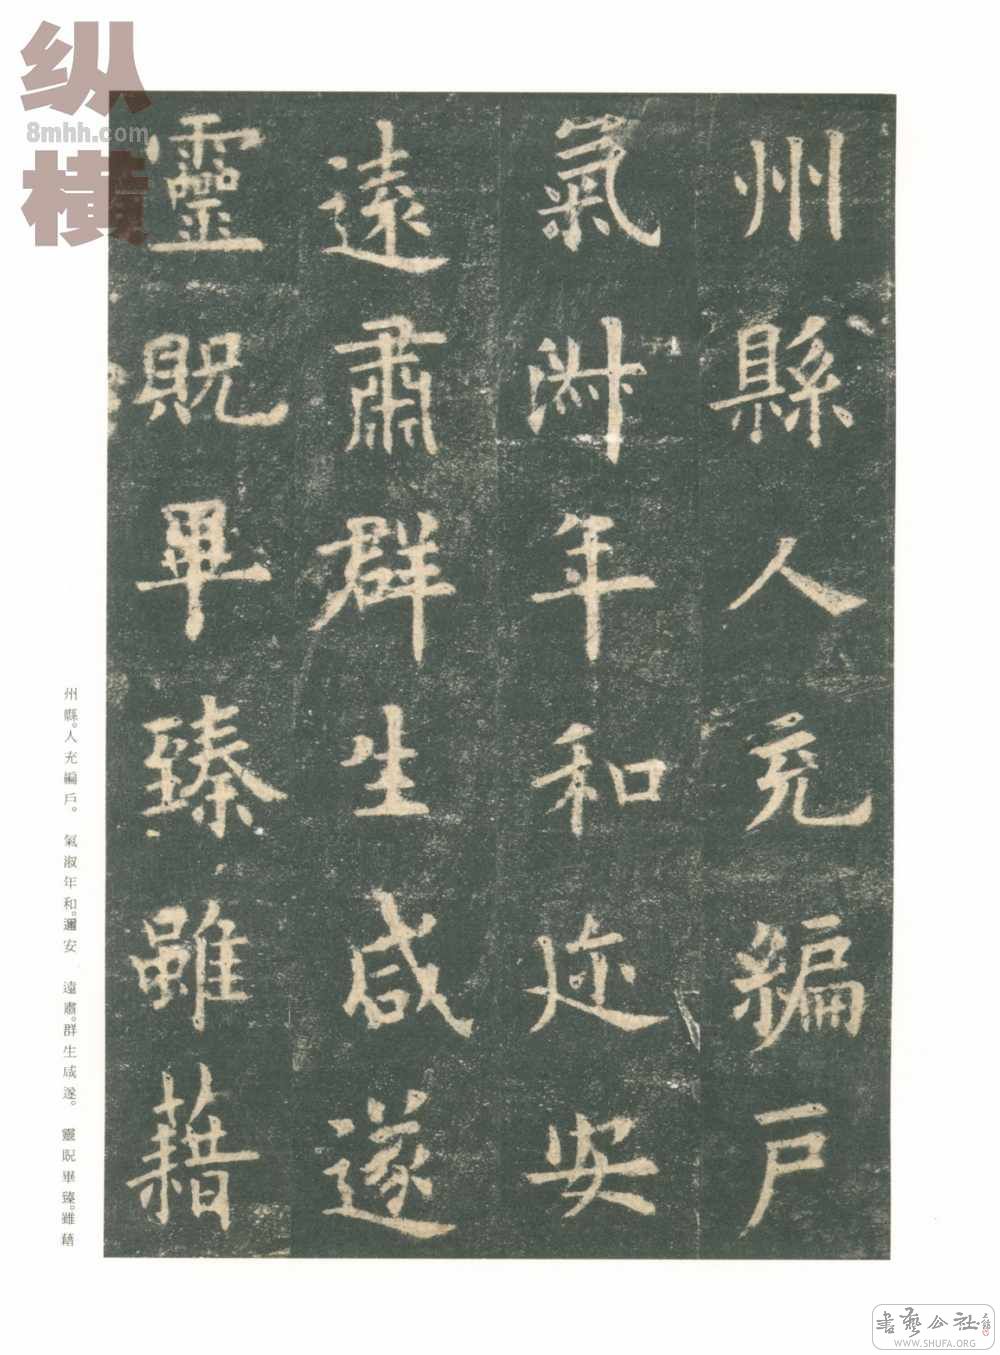 州縣人充編戶
氣淑年和迩安
遠肅群生咸遂
靈貺畢臻雖藉
州縣。人充編戶。 氣淑年和。邇安 遠肅。群生咸遂。 靈貺畢臻。雖藉
纵横
8mhh.com
書藝公社
WWW.SHUFA.ORG